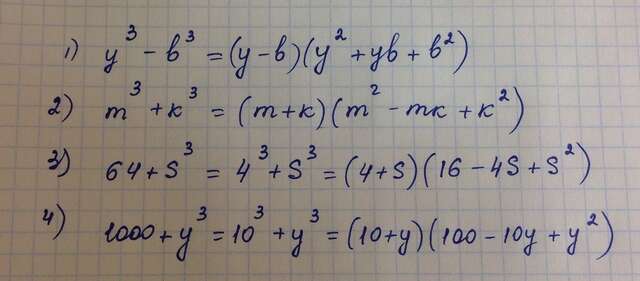 1) y³ - b³ = (y-b)(y² + yb + b²)
2) m³ + k³ = (m+k)(m² - mk + k²)
3) 64 + S³ = 4³ + S³ = (4+S)(16 - 4S + S²)
4) 1000 + y³ = 10³ + y³ = (10+y)(100 - 10y + y²)